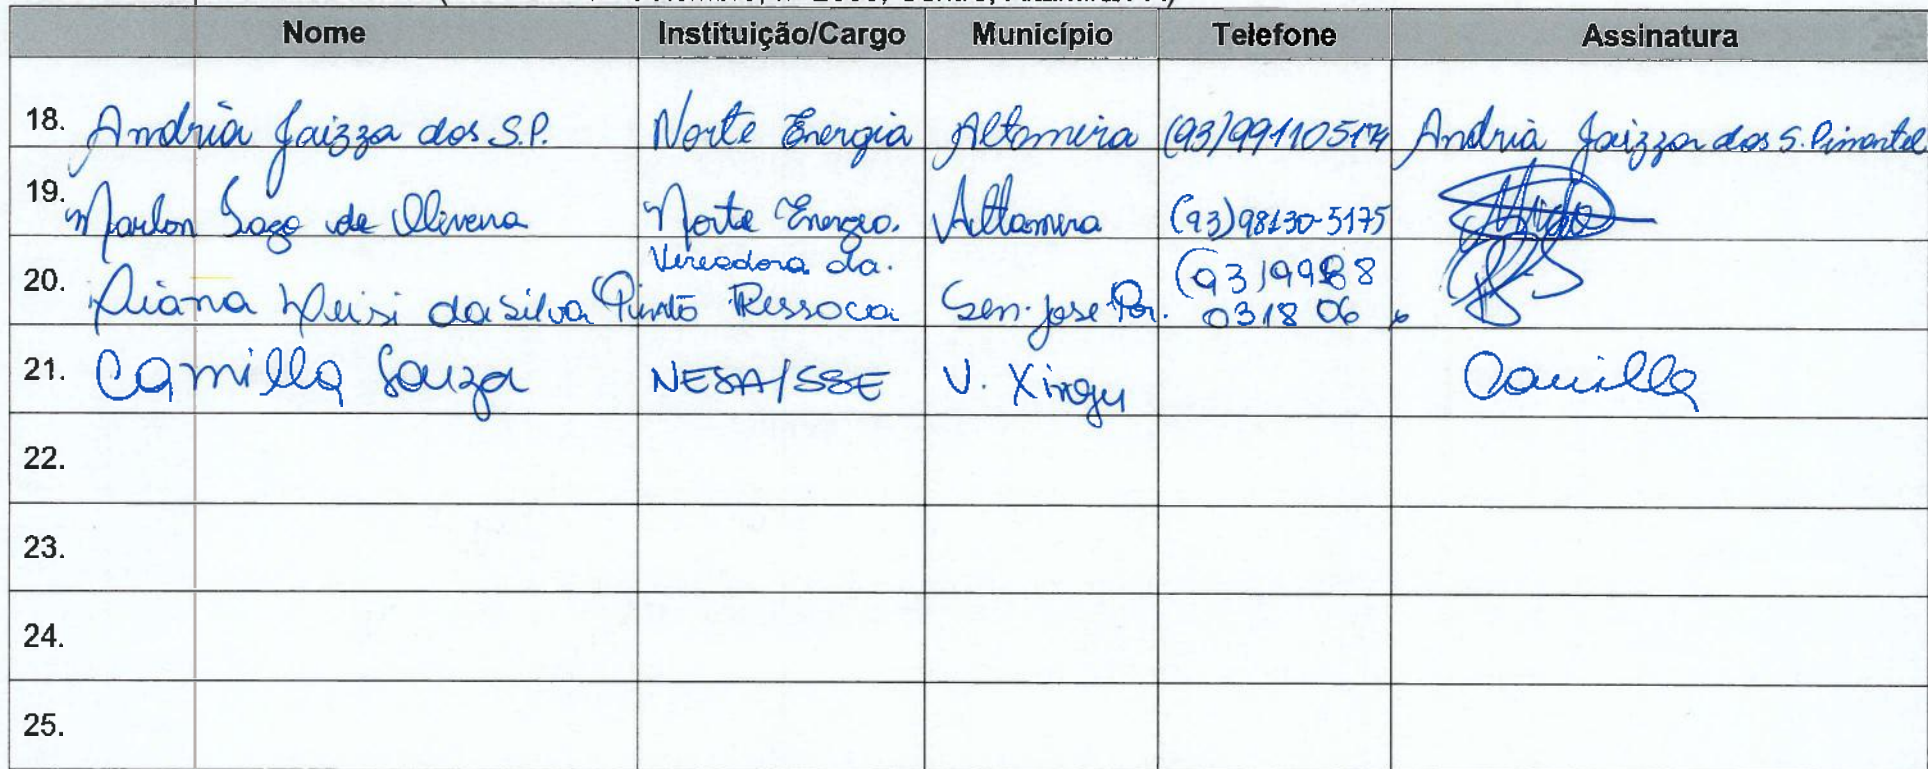 Nome Instituição/Cargo Município Telefone Assinatura
18. Andria Jaizza dos S.P. Norte Energia Altamira (93)991105174 Andria Jaizza dos S. Pimentel
19. Marlon Iago de Oliveira Norte Energia. Altamira (93)98130-5175
Vereadora da. (93)9988
20. Diana da Silva Pinto Ressaca Sen. José Por. 031806
21. Camilla Souza NESA/SSE V. Xingu Camilla
22.
23.
24.
25.